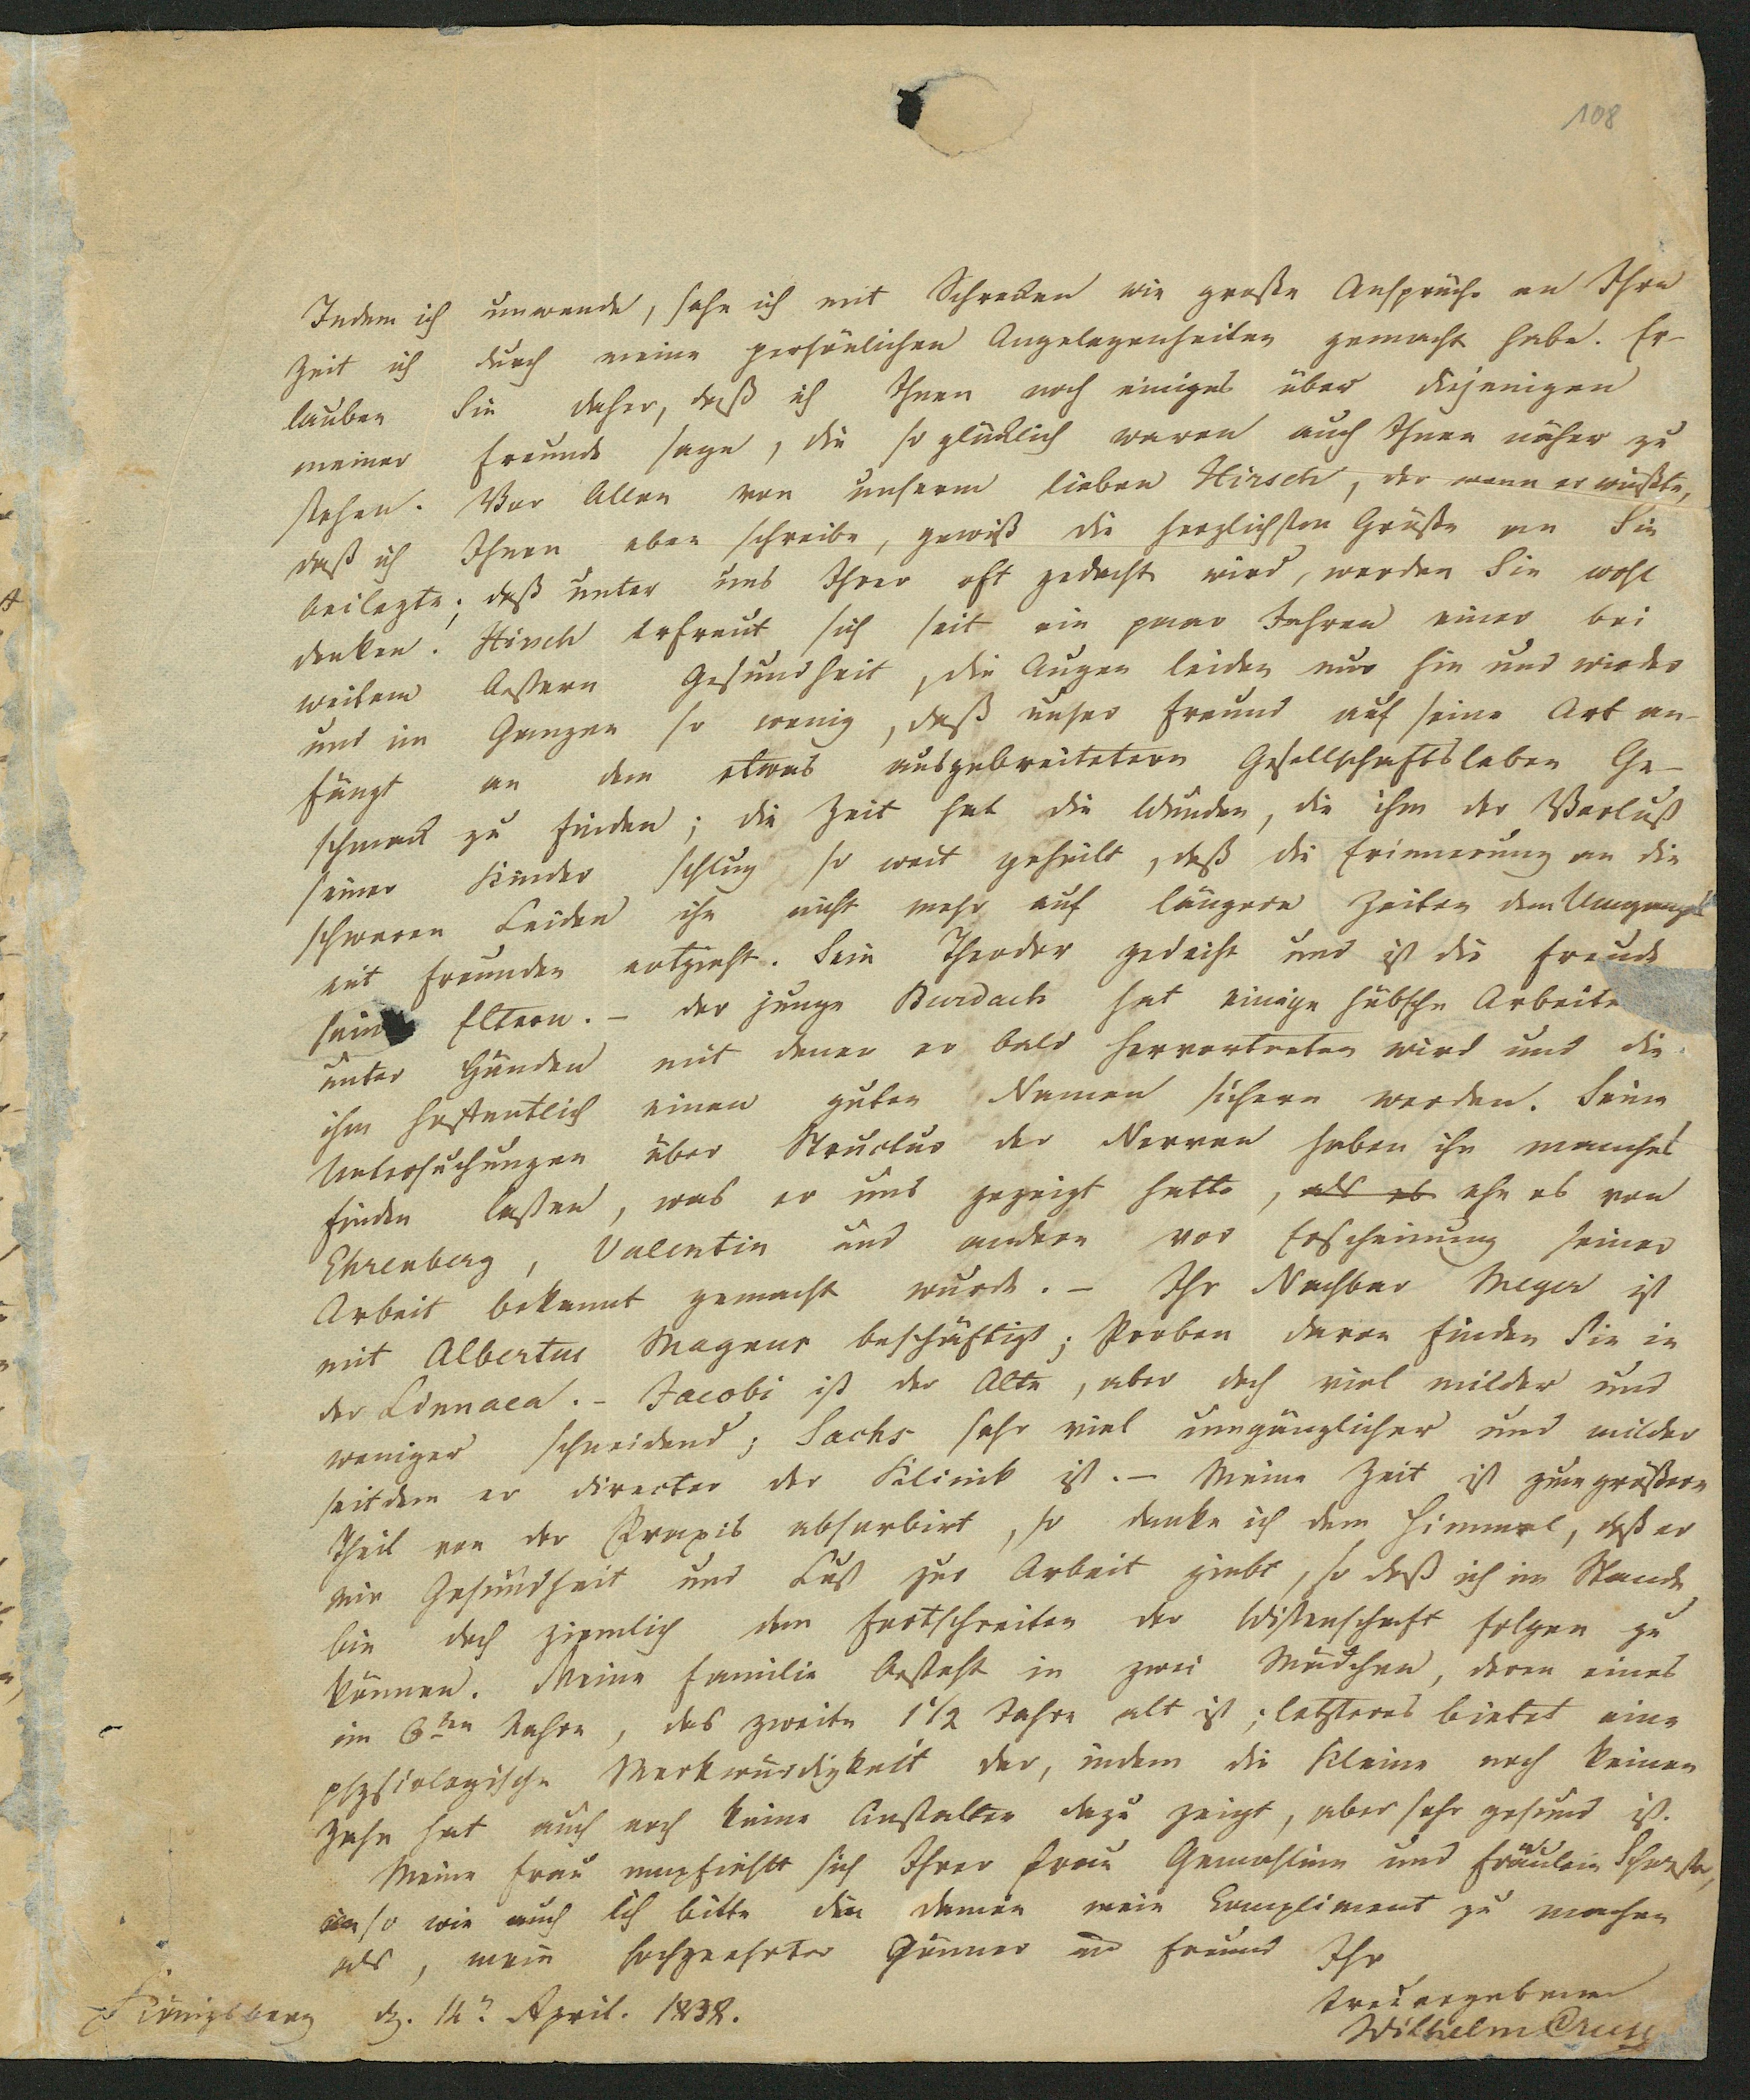 108
Indem ich umwende, sehe ich mit Schrecken wie große Ansprüche an Ihre
Zeit ich durch meine persönlichen Angelegenheiten gemacht habe. Er-
lauben Sie daher, daß ich Ihnen noch einiges über diejenigen
meiner Freunde sage, die so glücklich waren auch Ihnen näher zu
stehen. Vor Allen von unserm lieben Hirsch, der wenn er wüßte,
daß ich Ihnen eben schreibe, gewiß die herzlichsten Grüße an Sie
beilegte; daß unter uns Ihrer oft gedacht wird, werden Sie wohl
denken. Hirsch erfreut sich seit ein paar Jahren einer bei
weitem bessern Gesundheit, die Augen leiden nur hin und wieder
und im Ganzen so wenig, daß unser Freund auf seine Art an-
fängt an dem etwas ausgebreitetern Gesellschaftsleben Ge-
schmack zu finden; die Zeit hat die Wunden, die ihm der Verlust
seiner Kinder schlug so weit geheilt, daß die Erinnerung an die
schweren Leiden ihn nicht mehr auf längere Zeiten dem Umgange
mit Freunden entzieht. Sein Theodor gedeiht und ist die Freude
seiner Eltern. – Der junge Burdach hat einige hübsche Arbeiten
unter Händen mit denen er bald hervortreten wird und die
ihm hoffentlich einen guten Namen sichern werden. Seine
Untersuchungen über Structur der Nerven haben ihn manches
finden lassen, was er uns gezeigt hatte, als es ehe es von
Ehrenberg, Valentin und andern vor Erscheinung seiner
Arbeit bekannt gemacht wurde. – Ihr Nachbar Meyer ist
mit Albertus Magnus beschäftigt; Proben davon finden Sie in
der Linnaea. – Jacobi ist der Alte, aber doch viel milder und
weniger schneidend; Sachs sehr viel umgänglicher und milder
seitdem er Director der Klinik ist. – Meine Zeit ist zum größern
Theil von der Praxis absorbirt, so danke ich dem Himmel, daß er
mir Gesundheit und Lust zur Arbeit giebt, so daß ich im Stande
bin doch ziemlich dem Fortschreiten der Wissenschaft folgen zu
können. Meine Familie besteht in zwei Mädchen, deren eines
im 6ten Jahre, das zweite 1 1/2 Jahre alt ist; letzteres bietet eine
physiologische Merkwürdigkeit dar, indem die Kleine noch keinen
Zahn hat auch noch keine Anstalten dazu zeigt, aber sehr gesund ist.
Meine Frau empfiehlt sich Ihrer Frau Gemahlinn und Fräulein Schwester,
so wie auch ich bitte den Damen mein Compliment zu machen
als, mein hochgeehrter Gönner und Freund Ihr
treu ergebener
Königsberg d. 14n April. 1838.
Wilhelm Cruse